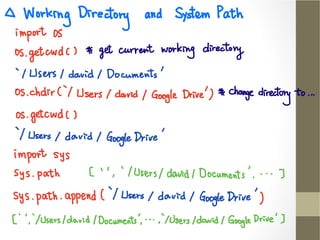 △ Working Directory and System Path
import os
os.getcwd() # get current working directory
'/Users/david/Documents'
os.chdir('/Users/david/Google Drive') # change directory to ...
os.getcwd()
'/Users/david/Google Drive'
import sys
sys.path ['', '/Users/david/Documents', ... ]
sys.path.append('/Users/david/Google Drive')
['', '/Users/david/Documents', ..., '/Users/david/Google Drive']